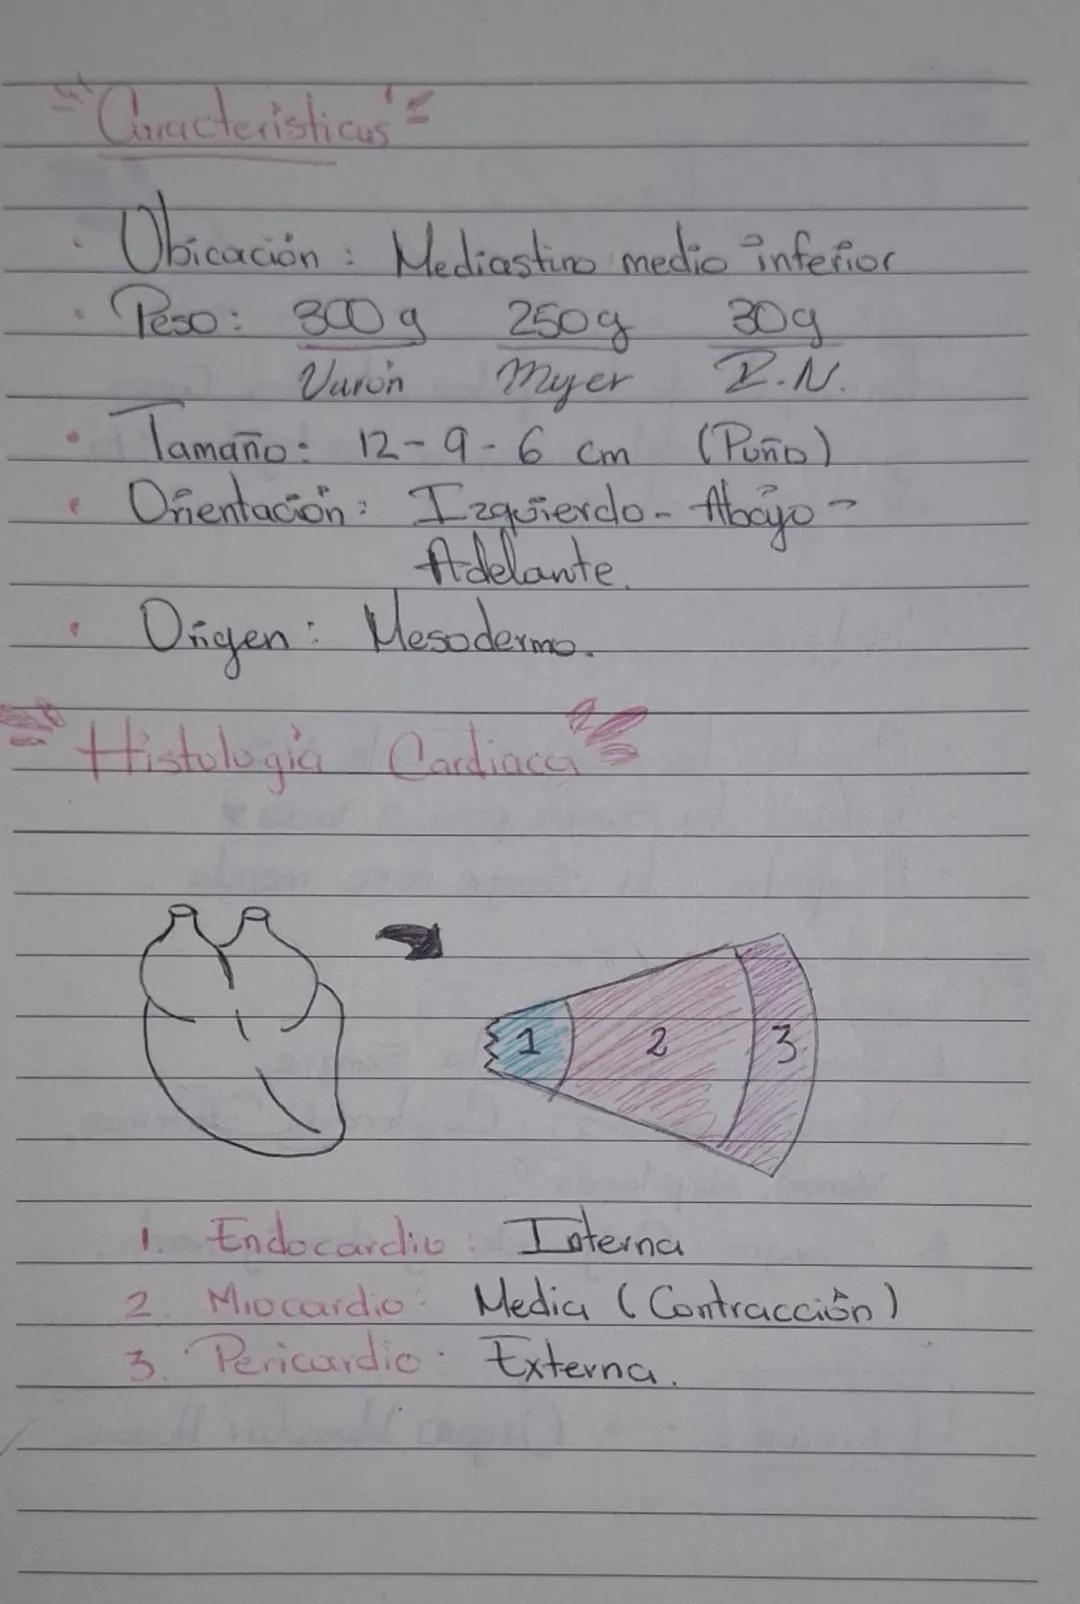 "Caracteristicas"
• Ubicación: Mediastino medio inferior
• Peso: 300g 250g 30g
Varón Mujer R.N.
• Tamaño: 12-9-6 cm (Puño)
• Orientación: Izquierdo - Abajo -
Adelante.
• Origen: Mesodermo.
"Histología Cardiaca"
1 2 3
1. Endocardio: Interna
2. Miocardio: Media (Contracción)
3. Pericardio: Externa.